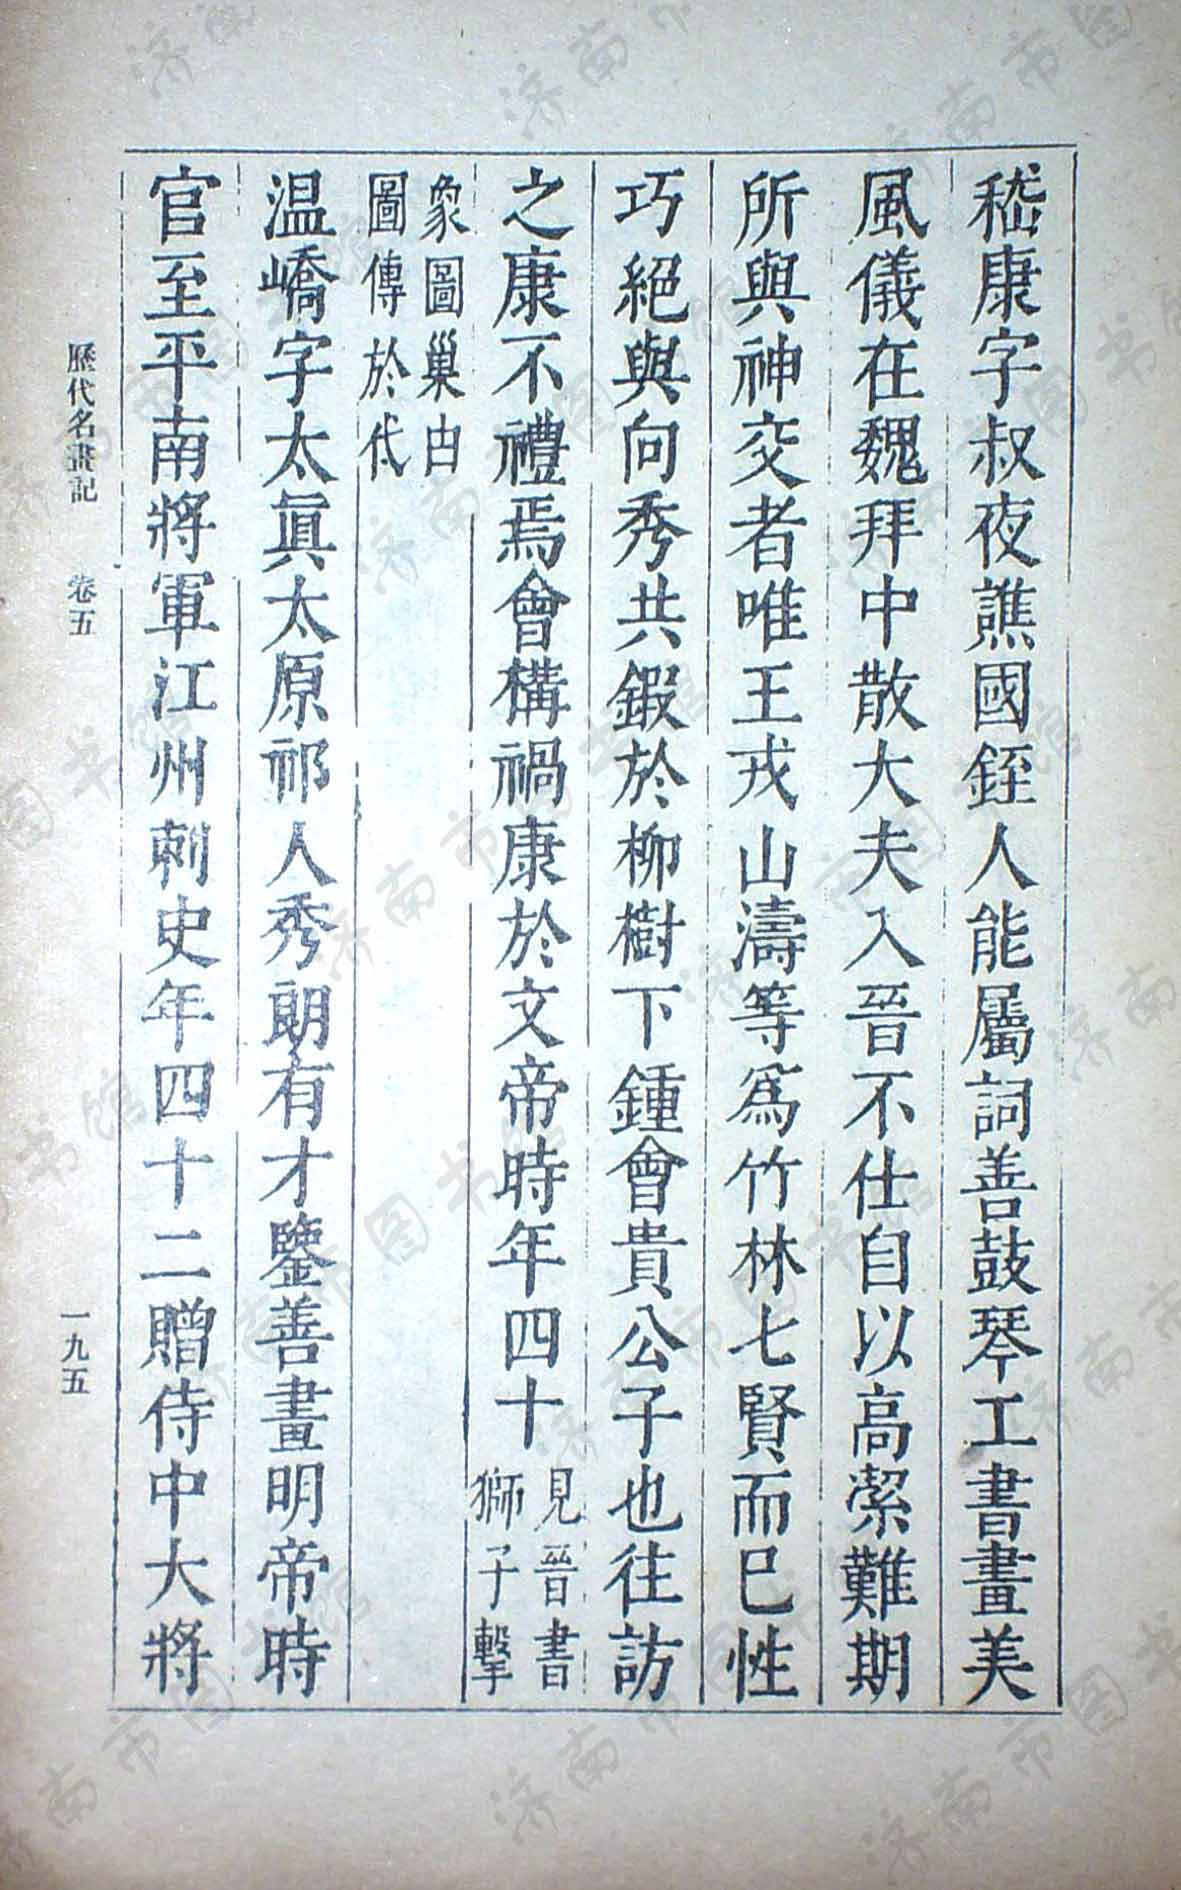 嵇康字叔夜譙國銍人能屬詞善鼓琴工書畫美
風儀在魏拜中散大夫入晉不仕自以高潔難期
所與神交者唯王戎山濤等爲竹林七賢而已性
巧絕與向秀共鍛於柳樹下鍾會貴公子也往訪
之康不禮焉會構禍康於文帝時年四十
見晉書
獅子擊
象圖巢由
圖傳於代
温嶠字太眞太原祁人秀朗有才鑒善畫明帝時
官至平南將軍江州刺史年四十二贈侍中大將
歷代名畫記 卷五 一九五
济南市图书馆